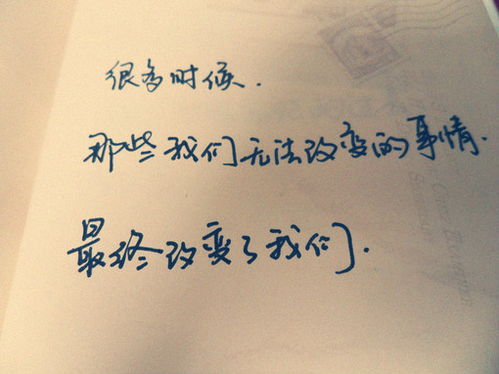 很多时候.
那些我们无法改变的事情.
最终改变了我们.